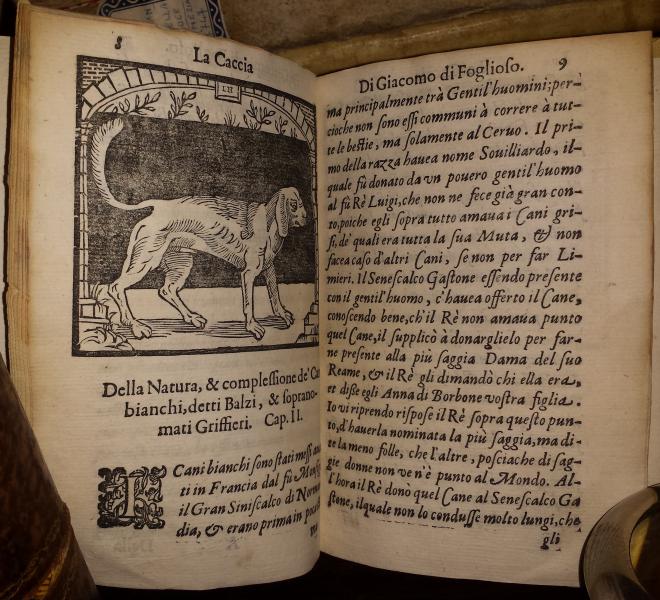 8
La Caccia
Della Natura, & complessione de' Ca
bianchi, detti Balzi, & sopranо-
mati Griffieri. Cap. II.
I Cani bianchi sono stati messi
ti in Francia dal fù
il Gran Siniscalco di Norman
dia, & erano prima in poca
Di Giacomo di Foglioso. 9
ma principalmente trà Gentil'huomini; per-
cioche non sono essi communi à correre à tut-
te le bestie, ma solamente al Ceruo. Il pri-
mo della razza hauea nome Souilliardo, il-
quale fù donato da vn pouero gentil'huomo
al fù Rè Luigi, che non ne fece già gran con-
to, poiche egli sopra tutto amaua i Cani gri-
si, de' quali era tutta la sua Muta, & non
facea caso d'altri Cani, se non per far Li-
mieri. Il Senescalco Gastone essendo presente
con il gentil'huomo, c'hauea offerto il Cane,
conoscendo bene, ch'il Rè non amaua punto
quel Cane, il supplicò à donarglielo per far-
ne presente alla più saggia Dama del suo
Reame, & il Rè gli dimandò chi ella era,
et disse egli Anna di Borbone vostra figlia.
Io vi riprendo rispose il Rè sopra questo pun-
to, d'hauerla nominata la più saggia, ma di-
te la meno folle, che l'altre, posciache di sag-
gie donne non ven'è punto al Mondo. Al-
l'hora il Rè donò quel Cane al Senescalco Ga
stone, ilquale non lo condusse molto lungi, che
gli